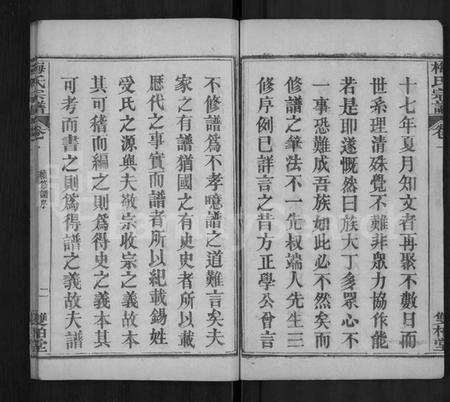 梅氏宗譜
卷一
十七年夏月知文者再聚不數日而
世系理清殊覺不難非眾力協作能
若是耶遂慨然曰族大丁多眾心不
一事恐難成吾族如此必不然矣而
修譜之筆法不一先叔端人先生三
修序例已詳言之昔方正學公曾言
雙桂堂
梅氏宗譜
卷一
不修譜為不孝噫譜之道難言矣夫
家之有譜猶國之有史史者所以載
歷代之事實而譜者所以紀載錫姓
受氏之源與夫敬宗收宗之義故本
其可稽而編之則為得史之義本其
可考而書之則為得譜之義故夫譜
一
雙桂堂